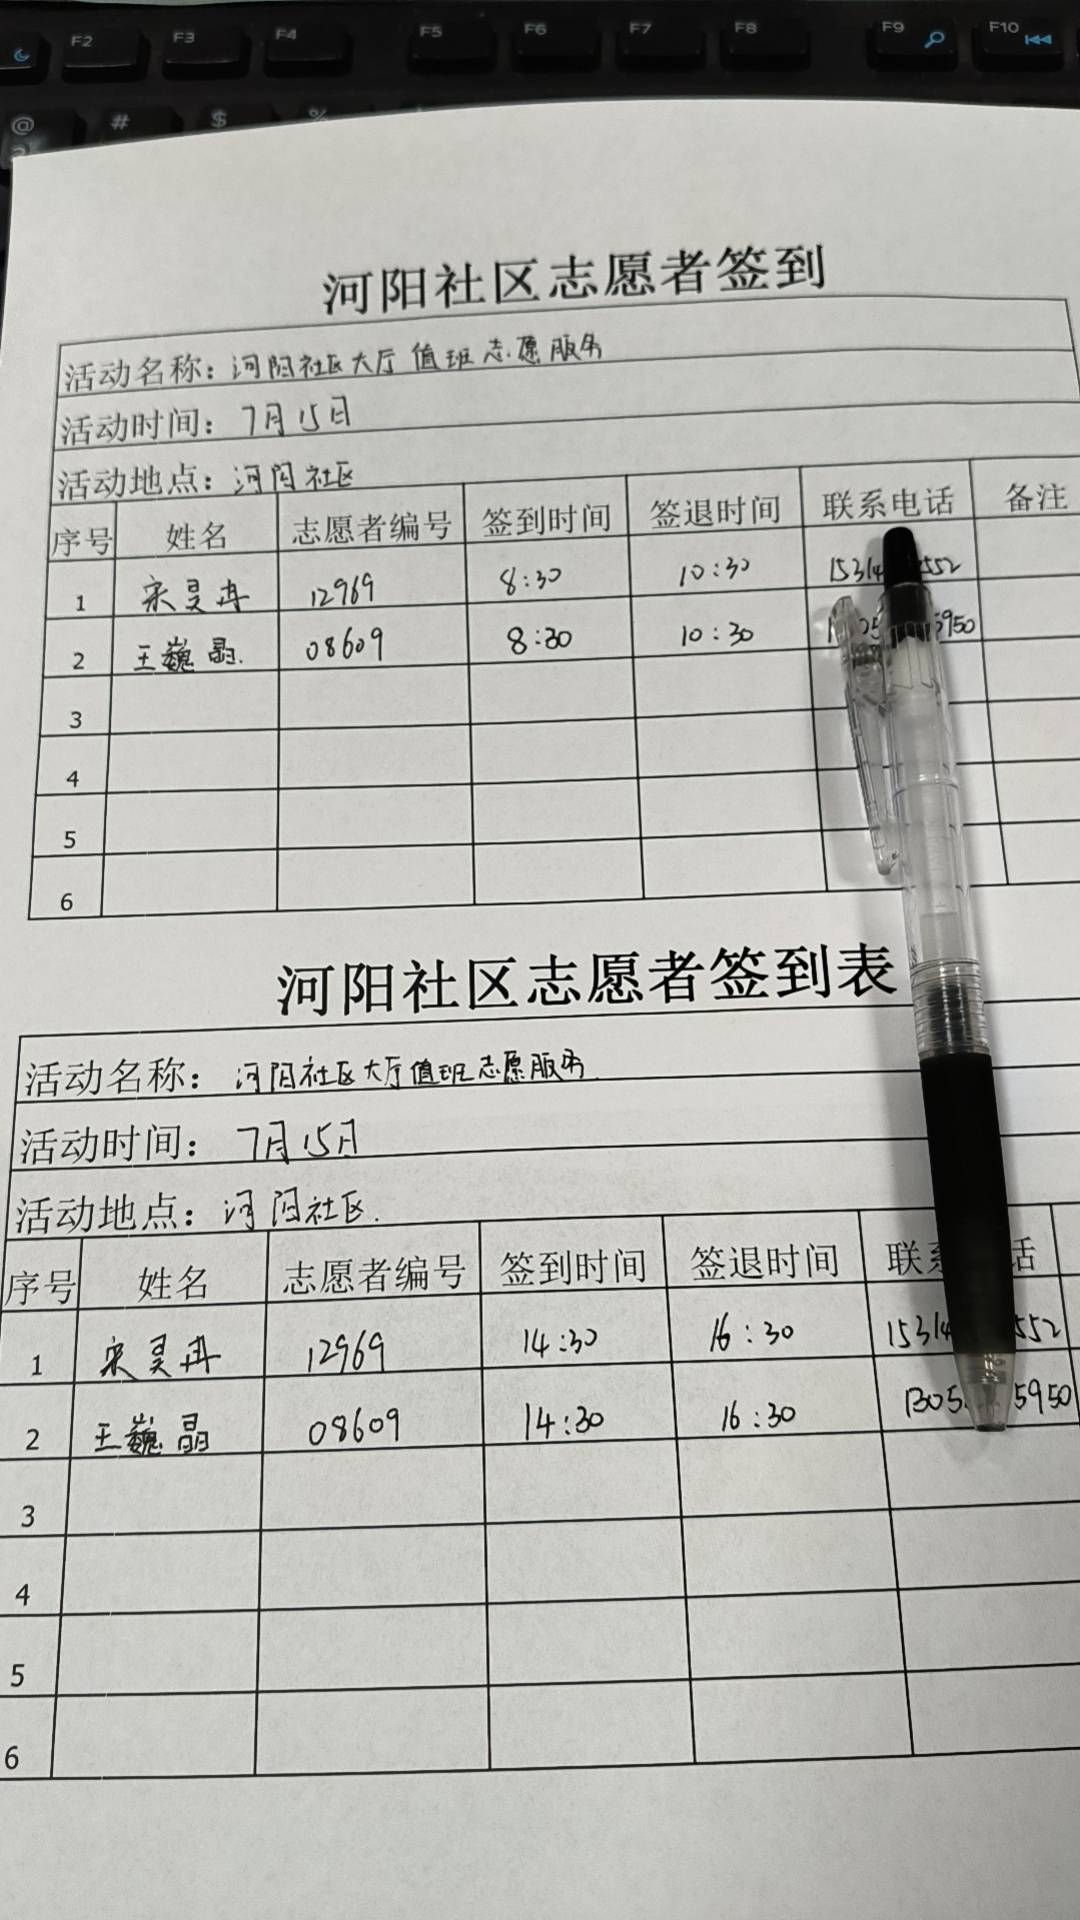 F2 F3 F4 F5 F6 F7 F8 F9 F10
@ # $ %
河阳社区志愿者签到
活动名称：河阳社区大厅值班志愿服务
活动时间：7月15日
活动地点：河阳社区
序号 姓名 志愿者编号 签到时间 签退时间 联系电话 备注
1 宋昊冉 12969 8:30 10:30 15314 552
2 王巍晶 08609 8:30 10:30 5950
3
4
5
6
河阳社区志愿者签到表
活动名称：河阳社区大厅值班志愿服务
活动时间：7月15日
活动地点：河阳社区.
序号 姓名 志愿者编号 签到时间 签退时间 联系 话
1 宋昊冉 12969 14:30 16:30 15314 552
2 王巍晶 08609 14:30 16:30 1305 5950
3
4
5
6